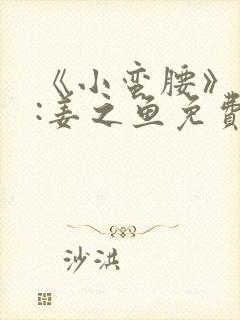 《小蛮腰》
:姜之鱼免費
沙洪